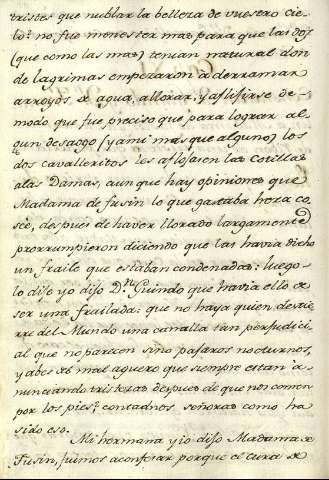 tristes que nublar la belleza de vuestro cie-
lo? no fue menester mas para que las dos
(que como las mas) tenian natural don
de lagrimas empezaron a derramar
arroyos de agua, allorar, y aflisirse de-
modo que fue preciso que para lograr al-
gun desaogo (y ami mas que alguno) los
dos cavalleritos les aflojasen las cotillas
alas Damas, aunque hay opiniones que
Madama de fusin lo que gastaba hera co-
sé, despues de haver llorado largamente
prorrumpieron diciendo que las havia dicho
un fraile que estaban condenadas: luego-
lo dije yo dijo Dn Guindo que havia ello de
ser una frailada: que no haya quien destie-
rre del Mundo una canalla tan perjudici-
al que no parecen sino pajaros nocturnos,
y abes de mal aguero que siempre estan a-
nunciando tristezas despues de que nos comen
por los pies, contadnos señoras como ha
sido eso.
Mi hermana y io dijo Madama de
Fusin, fuimos aconfesar porque el cura de